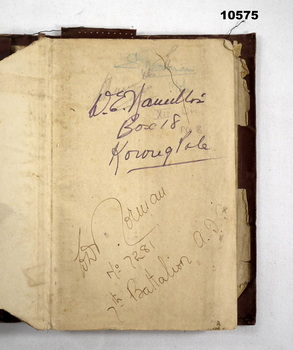 10575
D. E. Hamilton
Box 18
Korong Vale
Norman
No 7281
7th Battalion A.I.F.